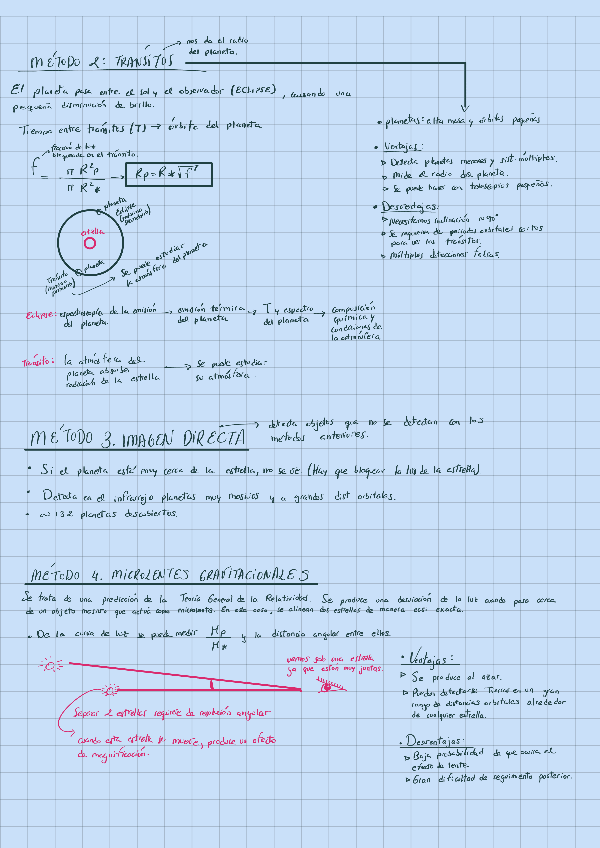 MÉTODO 2: TRÁNSITOS
nos da el radio
del planeta.
El planeta pasa entre el sol y el observador (ECLIPSE), causando una
pequeña disminución de brillo.
Tiempo entre tránsitos (T) → órbita del planeta
f = fracción de luz
bloqueada en el tránsito.
= π R²p / π R²* → Rp = R* √f
planeta
Eclipse
estrella
planeta
Tránsito
Se puede estudiar
la atmósfera del planeta
• planetas: alta masa y órbitas pequeñas
• Ventajas:
▷ Detecta planetas menores y sist. múltiples.
▷ Mide el radio del planeta.
▷ Se puede hacer con telescopios pequeños.
• Desventajas:
▷ Necesitamos inclinación ~90°
▷ Se requieren de periodos orbitales cortos
para ver los tránsitos.
▷ Múltiples detecciones falsas.
Eclipse: espectroscopía de la emisión
del planeta. → emisión térmica
del planeta → T y espectro
del planeta → composición
química y
condiciones de
la atmósfera
Tránsito: la atmósfera del
planeta absorbe
radiación de la estrella → Se puede estudiar
su atmósfera.
MÉTODO 3. IMAGEN DIRECTA
→ detecta objetos que no se detectan con los
métodos anteriores.
• Si el planeta está muy cerca de la estrella, no se ve. (Hay que bloquear la luz de la estrella)
• Detecta en el infrarrojo planetas muy masivos y a grandes dist orbitales.
• ~ 132 planetas descubiertos.
MÉTODO 4. MICROLENTES GRAVITACIONALES
Se trata de una predicción de la Teoría General de la Relatividad. Se produce una desviación de la luz cuando pasa cerca
de un objeto masivo que actúa como microlente. En este caso, se alinean dos estrellas de manera casi exacta.
• De la curva de luz se puede medir Mp / M* y la distancia angular entre ellos.
vemos solo una estrella
ya que están muy juntas.
Separar 2 estrellas requiere de resolución angular
cuando esta estrella se mueve, produce un efecto
de magnificación.
• Ventajas:
▷ Se produce al azar.
▷ Pueden detectarse Tierras en un gran
rango de distancias orbitales alrededor
de cualquier estrella.
• Desventajas:
▷ Baja probabilidad de que ocurra el
efecto de lente.
▷ Gran dificultad de seguimiento posterior.